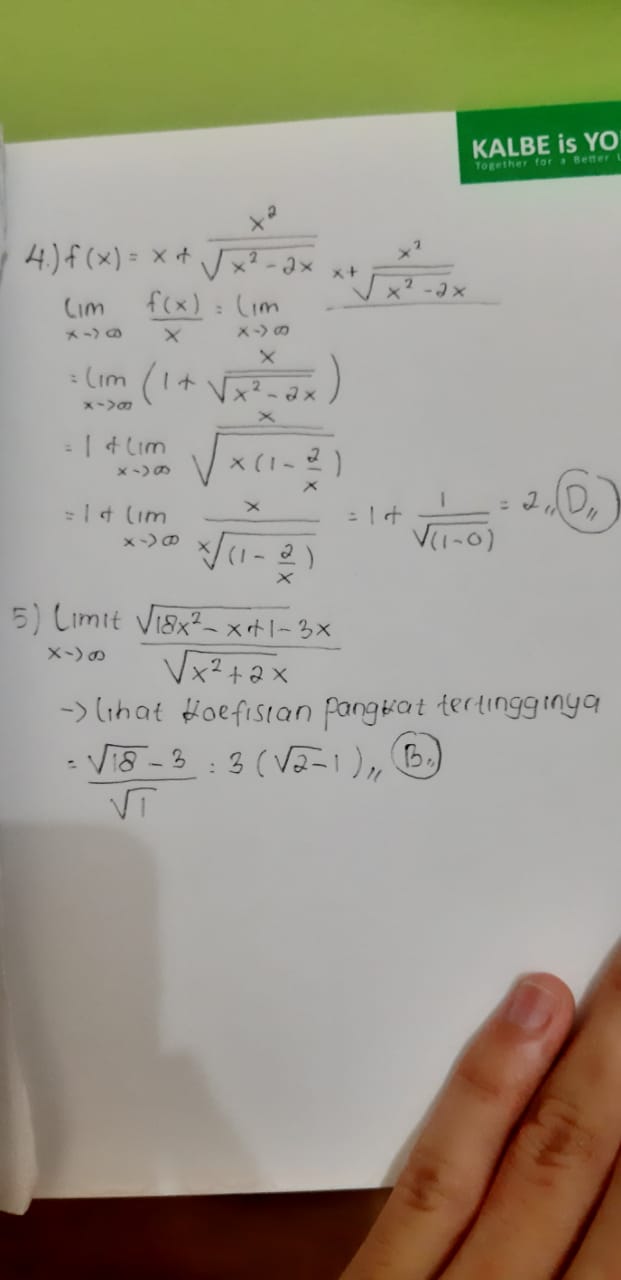 KALBE is YO
Together for a Better
4.) f(x) = x + x² / √(x² - 2x)
lim x->∞ f(x)/x = lim x->∞ x + x² / √(x² - 2x)
= lim x->∞ (1 + x / √(x² - 2x))
= 1 + lim x->∞ x / √(x(1 - 2/x))
= 1 + lim x->∞ x / x√((1 - 2/x)) = 1 + 1 / √(1-0) = 2,, D,,
5) Limit x->∞ √(18x² - x + 1) - 3x / √(x² + 2x)
-> lihat koefisian pangkat tertingginya
= √18 - 3 / √1 = 3(√2 - 1),, B,,